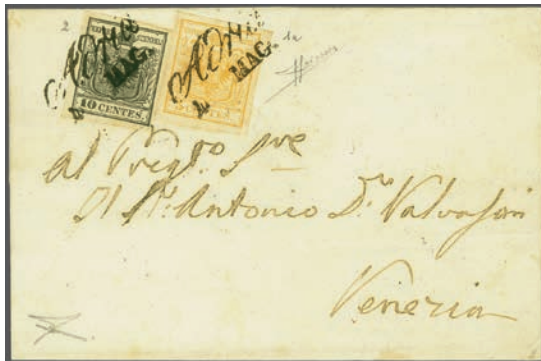 2
Adria
MAG.
10 CENTES.
Adria
MAG.
5 CENTES.
1a
al Preg.to Sre
Il Sr. Antonio Dr. Valvasori
Venezia